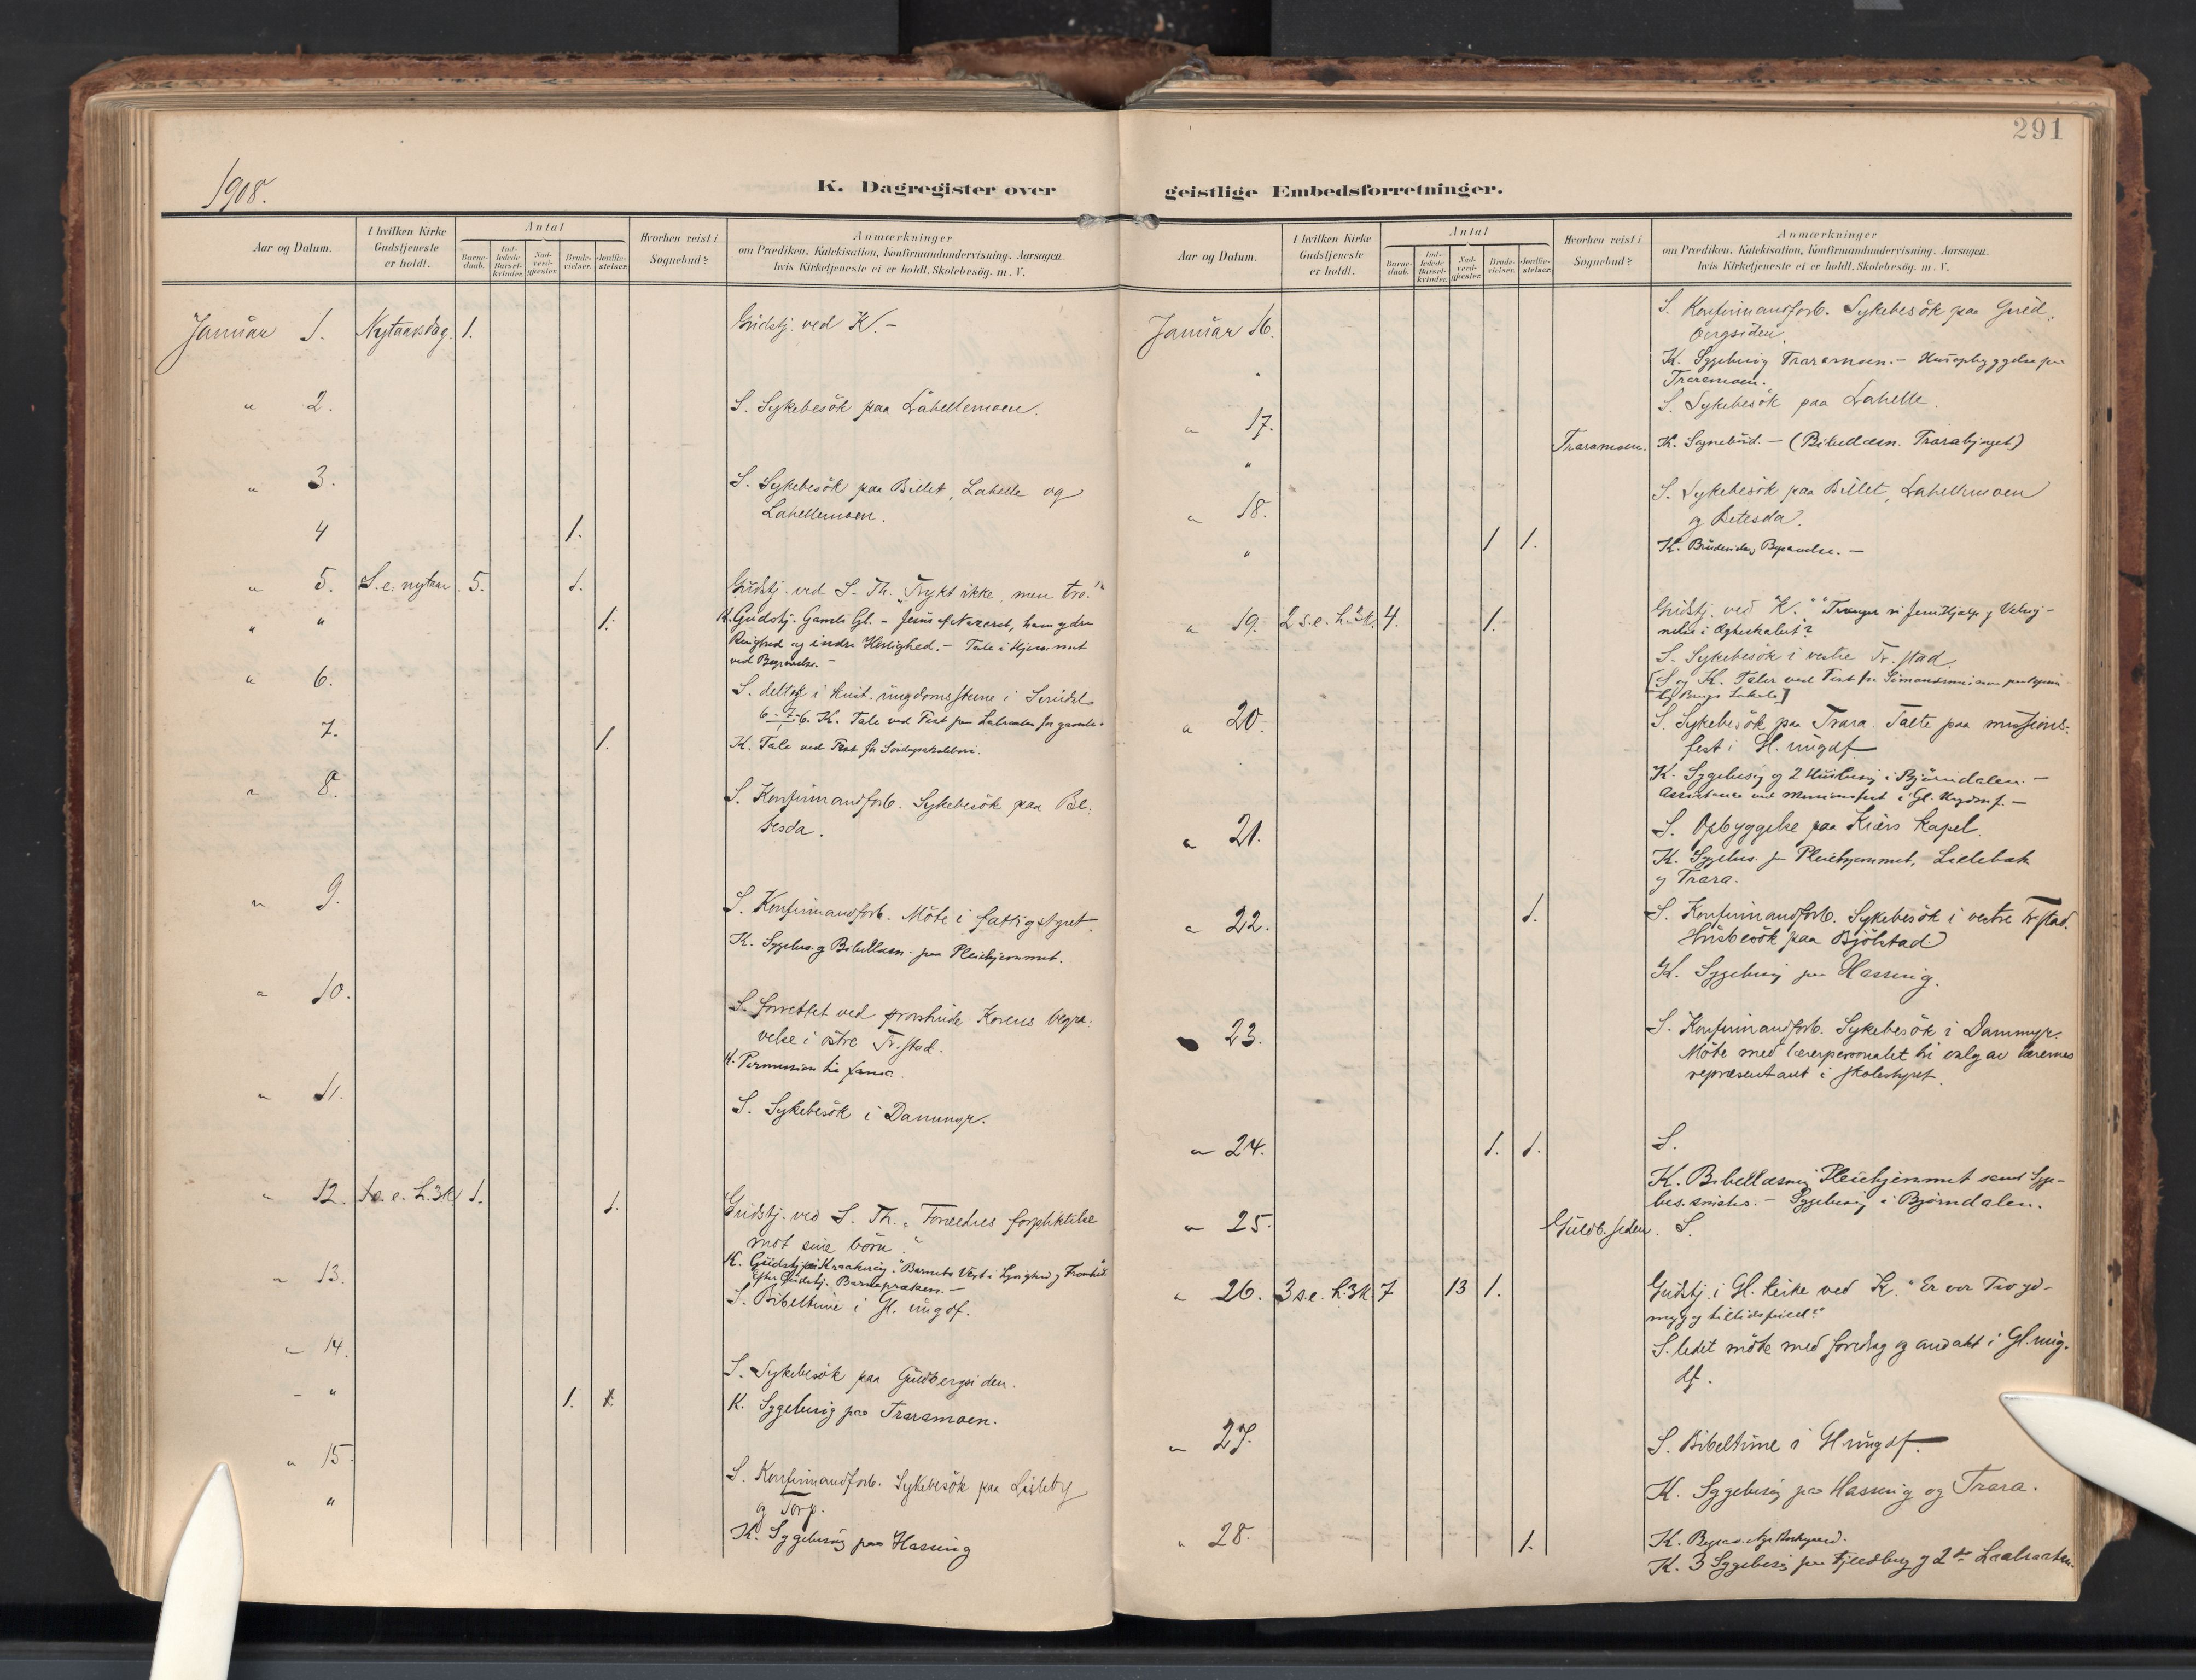 291
1908.
K. Dagregister over
geistlige Embedsforretninger.
Aar og Datum.
I hvilken Kirke
Gudstjeneste
er holdt.
Antal
Barne-
daab.
Ind-
ledede
Barsel-
kvinder.
Nad-
verd-
gjester.
Brude-
vielser.
Jordfæ-
stelser.
Hvorhen reist i
Sognebud?
Anmærkninger
om Prædiken. Katekisation, Konfirmandundervisning. Aarsagen.
hvis Kirketjeneste ei er holdt. Skolebesøg. m. V.
Januar 1. Nytaarsdag. 1. Gudstj. ved K. –
" 2. S. Sykebesök paa Lahellemoen.
" 3. S. Sykebesök paa Billet, Lahelle og
Lahellemoen.
4 1.
" 5. S. e. nytaar. 5. 1. Gudstj. ved S. Th. "Frykt ikke, men tro."
" " 1. K. Gudstj. Gamle Gl. – Jesus af Nazaret, hans ydre
Ringhed og indre Herlighed. – Tale i Hjemmet
ved Begravelse. –
" 6. S. deltok i ungdomsstevne i
6-7-6. K. Tale ved Fest paa for gamle.
7. 1. K. Tale ved Fest for
" 8. S. Konfirmandforb. Sykebesök paa Be-
tesda.
" 9. S. Konfirmandforb. Möte i fattigstyret.
K. Sygebes. og Bibellæsn. paa Pleiehjemmet.
" 10. S. forrettet ved Korens begra-
velse i östre Fr.stad.
K. Permission
" 11. S. Sykebesök i Dammyr.
" 12. 1 s. e. H. 3 K. 1. 1. Gudstj. ved S. Th. "Foreldres forpliktelse
mot sine börn."
K. Gudstj. paa Kraakeröy. "Barnets Vext i
Efter Gudstj. Barnepræken. –
" 13. S. Bibeltime i Gl. ungdf.
" 14. S. Sykebesök paa Guldbergsiden.
" " 1. K. Sygebesög paa Traramoen.
" 15. S. Konfirmandforb. Sykebesök paa Lisleby
og Torp.
" K. Sygebesög paa Hassing
Aar og Datum.
I hvilken Kirke
Gudstjeneste
er holdt.
Antal
Barne-
daab.
Ind-
ledede
Barsel-
kvinder.
Nad-
verd-
gjester.
Brude-
vielser.
Jordfæ-
stelser.
Hvorhen reist i
Sognebud?
Anmærkninger
om Prædiken. Katekisation, Konfirmandundervisning. Aarsagen.
hvis Kirketjeneste ei er holdt. Skolebesøg. m. V.
Januar 16. S. Konfirmandforb. Sykebesök paa Guld-
bergsiden.
K. Sygebesög Traramoen. – Husopbyggelse paa
Traramoen.
" 17. S. Sykebesök paa Lahelle.
" Traramoen. K. Sognebud. – (Bibellæsn. Trarabjerget)
" 18. S. Sykebesök paa Billet, Lahellemoen
og Betesda.
" 1 1. K. Brudevi. og Begravelse. –
" 19. 2 s. e. H. 3 K. 4. 1. Gudstj. ved K. "Trænger vi Jesu Hjælp og Velsig-
nelse i Ægteskabet"?
S. Sykebesök i vestre Fr.stad.
[S. og K. Taler ved Fest for
" 20. S. Sykebesök paa Trara. Talte paa missions-
fest i Gl. ungdf
K. Sygebesög og 2 Husbesög i Björndalen. –
Assistance ved Missionsfest i Gl. Ungdomsf. –
" 21. S. Opbyggelse paa Kiærs Kapel.
K. Sygebes. paa Pleiehjemmet, Lislebæk
og Trara.
" 22. 1. S. Konfirmandforb. Sykebesök i vestre Fr.stad.
Husbesök paa Bjölstad
K. Sygebesög paa Hassing.
23. S. Konfirmandforb. Sykebesök i Dammyr.
Möte med lærerpersonalet til valg av lærernes
repræsentant i skolestyret.
" 24. 1. 1. S.
K. Bibellæsning Pleiehjemmet samt Syge-
bes. – Sygebesög i Björndalen.
" 25. Guldb.siden. S.
" 26. 3 s. e. H. 3 K. 7 13 1. Gudstj. i Gl. Kirke ved K. "Er vor Tro yd-
myg og tillidsfuld?"
S. ledet möte med foredrag og andakt i Gl. ung-
df.
" 27. S. Bibeltime i Gl ungdf.
K. Sygebesög paa Hassing og Trara.
" 28. 1. K. Begrav.
K. 3 Sygebesög paa Fjeldberg og 2